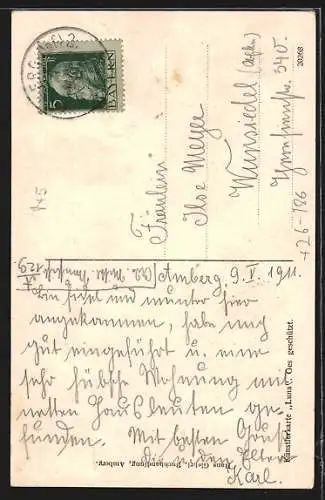 BAYERN
5
Fräulein
Ilse Meyer
Wunsiedel
340.
20268
+26-186
Amberg, 9. V. 1911.
Bin fidel und munter hier
angekommen, habe mich
gut eingeführt u. eine
sehr hübsche Wohnung mit
netten Hausleuten ge-
funden. Mit besten Gruß
Eltern
Karl.
Künstlerkarte „Luna". Ges geschützt.
Buchhandlung, Amberg.